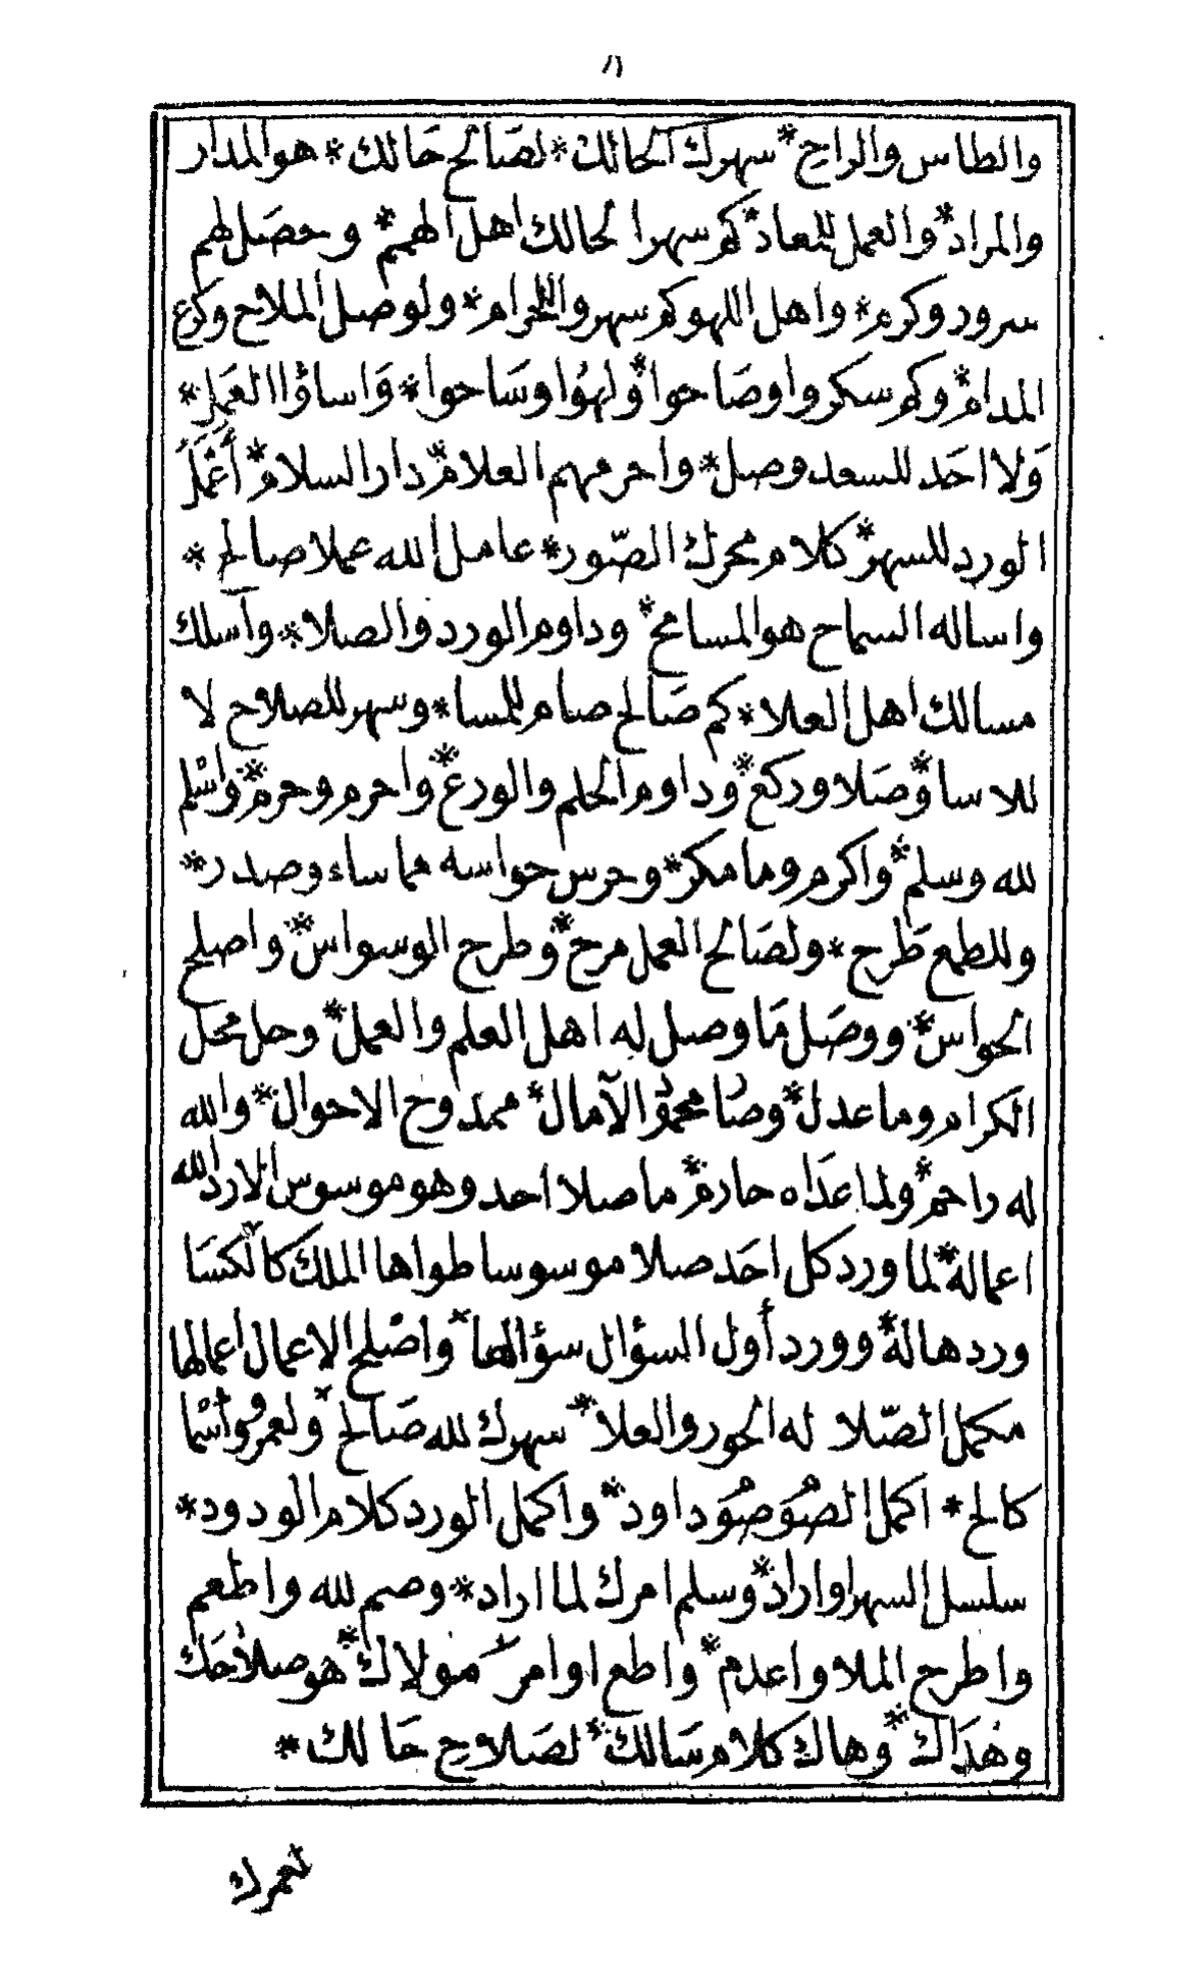 ١١
والطاس والراح * سهرك الحالك * لصالح حالك * هو المدار
والمراد * والعمل للمعاد * كم سهر الحالك اهل الهمم * وحصل لهم
سرور وكرم * واهل اللهو كم سهروا للحرام * ولوصل الملاح وكرع
المدام * وكم سكروا وصاحوا * ولهوا وساحوا * وَاساؤا العمل *
وَلا احَد للسعد وصل * واحرمهم العلام * دار السلام * أعمَل
الورد للسهر * كلام محرك الصّور * عامل الله عملا صالح *
واساله السماح هو المسامح * وداوم الورد والصلا * وآسلك
مسالك اهل العلا * كم صَالح صام للمسا * وسهر للصلاح لا
للاسا * وصَلا وركع * وداوم الحلم والورع * واحرم وحرم * واسْلم
لله وسلم * واكرم وما مكر * وحرس حواسه مما ساء وصدر *
وللطمع طَرح * ولصَالح العمل مرح * وطرح الوسواس * واصلح
الحواس * ووصَل مَا وصل له اهل العلم والعمل * وحل محل
الكرام وما عدل * وصَار محمود الآمال * ممدوح الاحوال * والله
له راحم * ولما عَدَاه حارم * ما صلا احد وهو موسوس الا رد الله
اعماله * لما ورد كل احَد صلا موسوسا طواها الملك كالكسَا
وردها له * وورد أول السؤال سؤالها * واصْلح الاعمال اعمالها
مكمل الصّلا له الحور والعلا * سهرك لله صَالح * ولعمرو واسْما
كالح * اكمل الصُوَر صُوَر داود * واكمل الورد كلام الودود *
سلسل السهر اوراد * وسلم امرك لما اراد * وصم لله واطعم
واطرح الملا واعدم * واطع اوامر مولاك * هو صلاحك
وهُدَاك * وهاك كلام سَالك * لصَلاح حَالك *
لعمرك